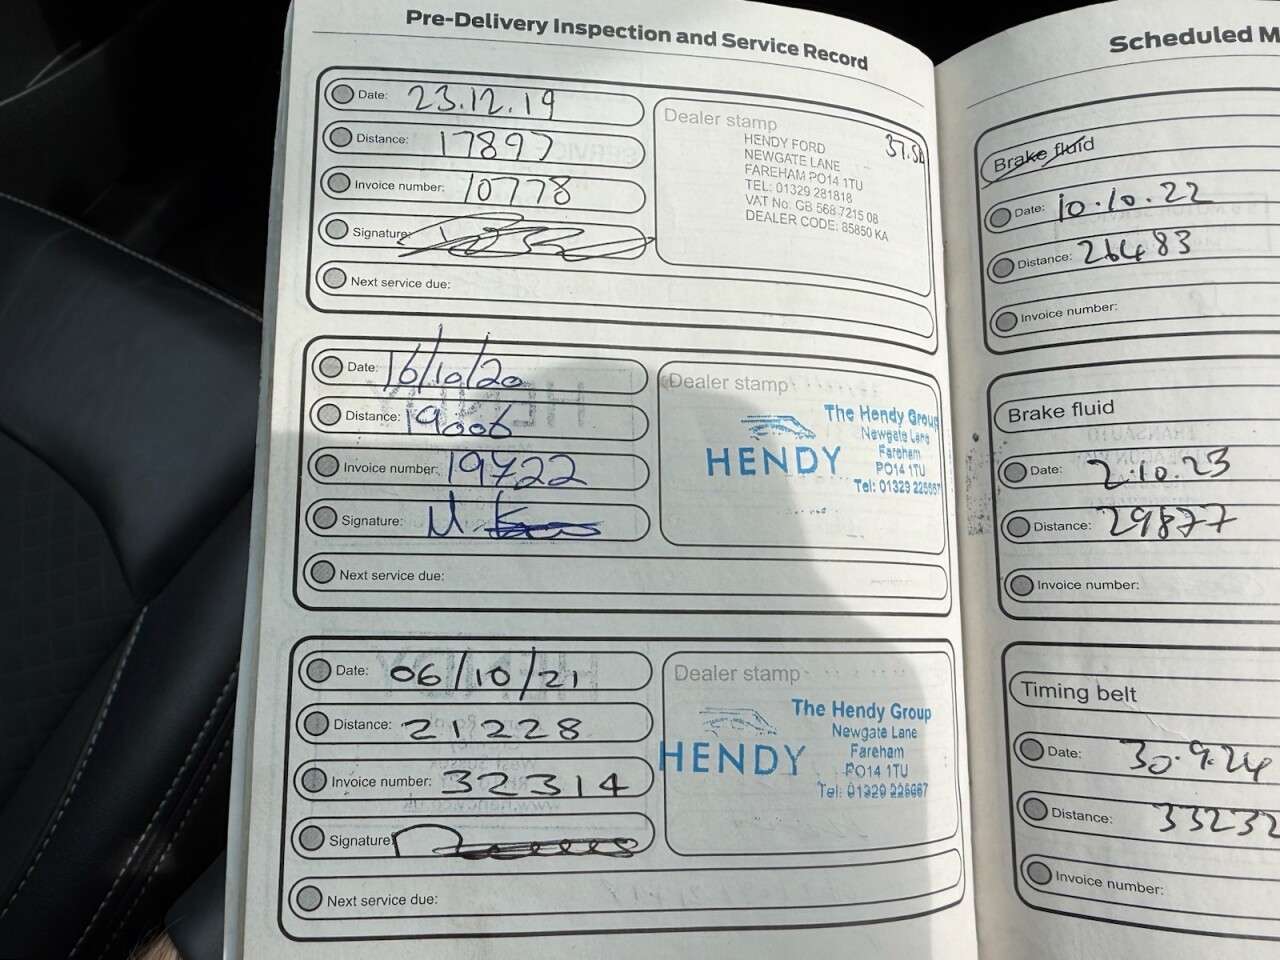 Pre-Delivery Inspection and Service Record
Date: 23.12.19
Distance: 17897
Invoice number: 10778
Signature:
Next service due:
Dealer stamp
HENDY FORD
NEWGATE LANE
FAREHAM PO14 1TU
TEL: 01329 281818
VAT No: GB 568 7215 08
DEALER CODE: 85850 KA
Date: 16/10/20
Distance: 19006
Invoice number: 19722
Signature:
Next service due:
Dealer stamp
HENDY
The Hendy Group
Newgate Lane
Fareham
PO14 1TU
Tel: 01329 225667
Date: 06/10/21
Distance: 21228
Invoice number: 32314
Signature:
Next service due:
Dealer stamp
HENDY
The Hendy Group
Newgate Lane
Fareham
PO14 1TU
Tel: 01329 225667
Scheduled M
Brake fluid
Date: 10.10.22
Distance: 26483
Invoice number:
Brake fluid
Date: 2.10.23
Distance: 29877
Invoice number:
Timing belt
Date: 30.9.24
Distance: 33232
Invoice number: